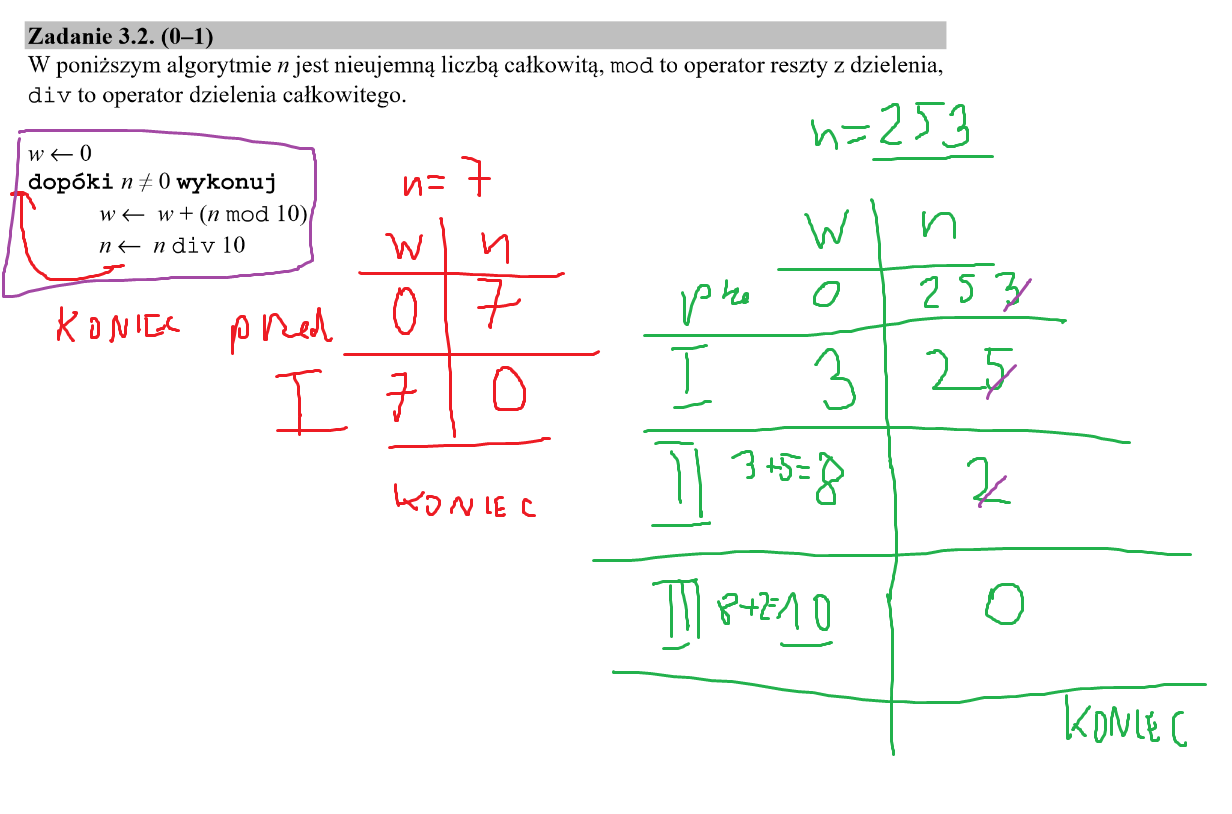 Zadanie 3.2. (0–1)
W poniższym algorytmie n jest nieujemną liczbą całkowitą, mod to operator reszty z dzielenia,
div to operator dzielenia całkowitego.
w ← 0
dopóki n ≠ 0 wykonuj
w ← w + (n mod 10)
n ← n div 10
KONIEC
n = 7
w n
przed 0 7
I 7 0
KONIEC
n = 253
w n
prze 0 253
I 3 25
II 3+5=8 2
III 8+2=10 0
KONIEC